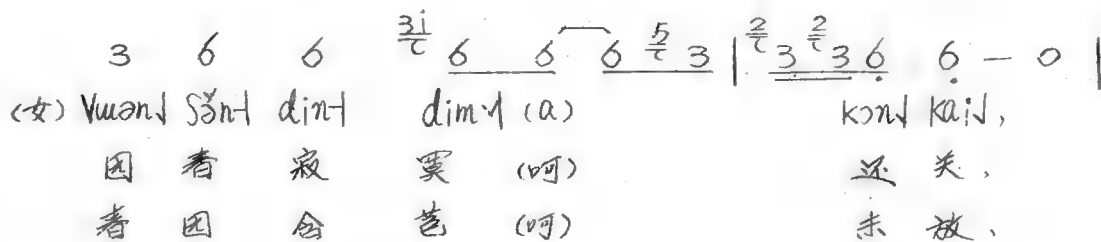 3 6 6 3i 6 6 6 5 3 | 2 3 2 3 6 6 — 0 |
(女) Vuən˩ Sə̌n˧ din˧ dim˨˩ (a) kɔn˩ kai˩,
园 春 寂 寞 (呵) 还 关、
春 园 含 苞 (呵) 未 放、